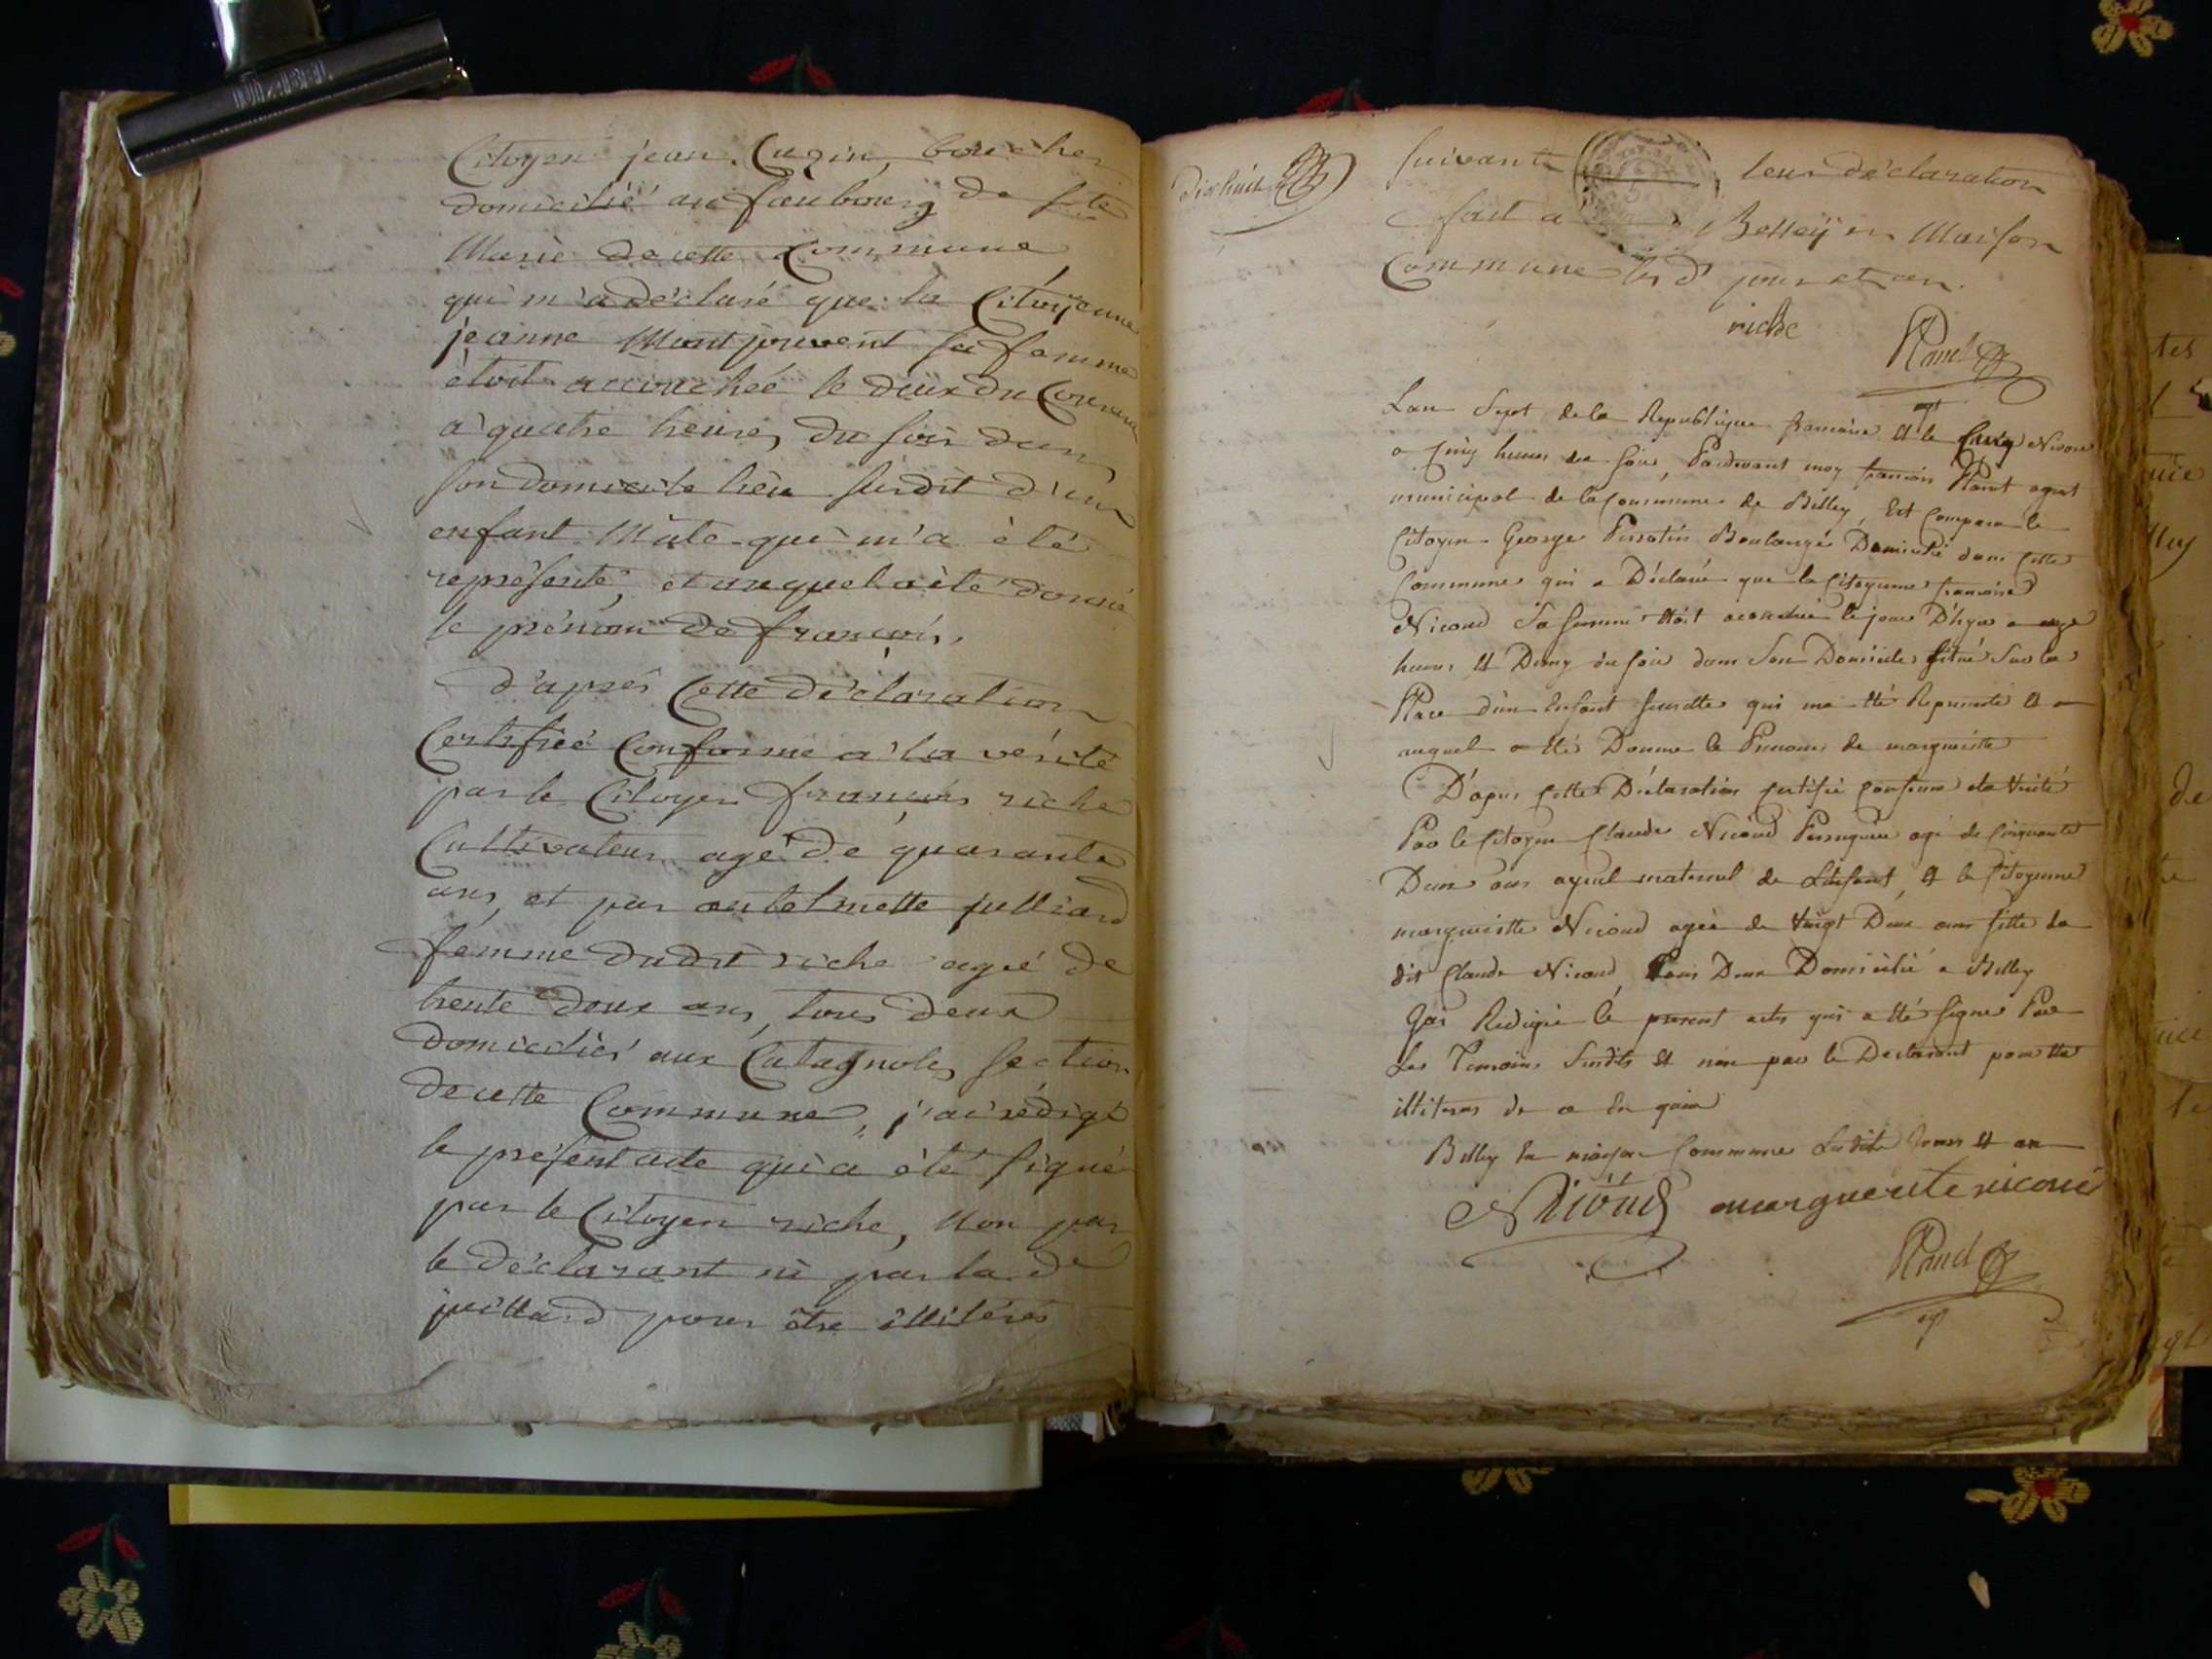 Citoyen jean Cuzin, boucher
domicilié au faubourg de ste
Marie de cette Commune
qui m'a déclaré que la Citoyenne
jeanne Montjouvent sa femme
étoit accouchée le deux du Courant
a quatre heures du soir dans
son domicile lieu susdit d'un
enfant Mâle qui m'a èté
représenté, et auquel a èté donné
le prénom de françois,
d'après Cette déclaration
Certifiée Conforme a la vérité
par le Citoyen françois riche
Cultivateur agé de quarante
ans, et par antelmette julliard
femme dudit riche agé de
trente deux ans, tous deux
domiciliés aux Catagnoles section
de cette Commune, j'ai rédigé
le présent acte qui a èté signé
par le Citoyen riche, Non par
le déclarant ni par la de
juillard pour être illitérés
suivant leur déclaration
fait a Belleÿ en Maison
Commune jour et an.
riche
L'an Sept de la Republique francaise Et le Cinq Nivose
a Cinq heures du soir, Pardevant moy francois agent
municipal de la Commune de Belley, Est Comparu le
Citoyen George Boulangé Domicilié dans Cette
Commune qui a Déclaré que la Citoyenne francoise
Nicoud Sa femme étoit acouchée le jour D'hyer a onze
heures Et Demy du soir dans Son Domicile situé Sur la
Place d'un Enfant femelle qui ma été Represente Et
auquel a été Donne le Prenom de marguerite
D'apres Cette Déclaration Certifié Conforme a la Verité
Par le Citoyen Claude Nicoud Perruquier agé de Cinquante
Deux ans ayeul maternel de L'enfant, Et la Citoyenne
marguerite Nicoud agée de Vingt Deux ans fille du
dit Claude Nicoud Tous Deux Domicilié a Belley
J'ai Redigé le present acte qui a été signé Par
Les Temoins Susdits Et non par le Declarant pour être
illiteres de ce En quis
Belley En maison Commune Ledit Jour et an
Nicoud marguerite nicoud